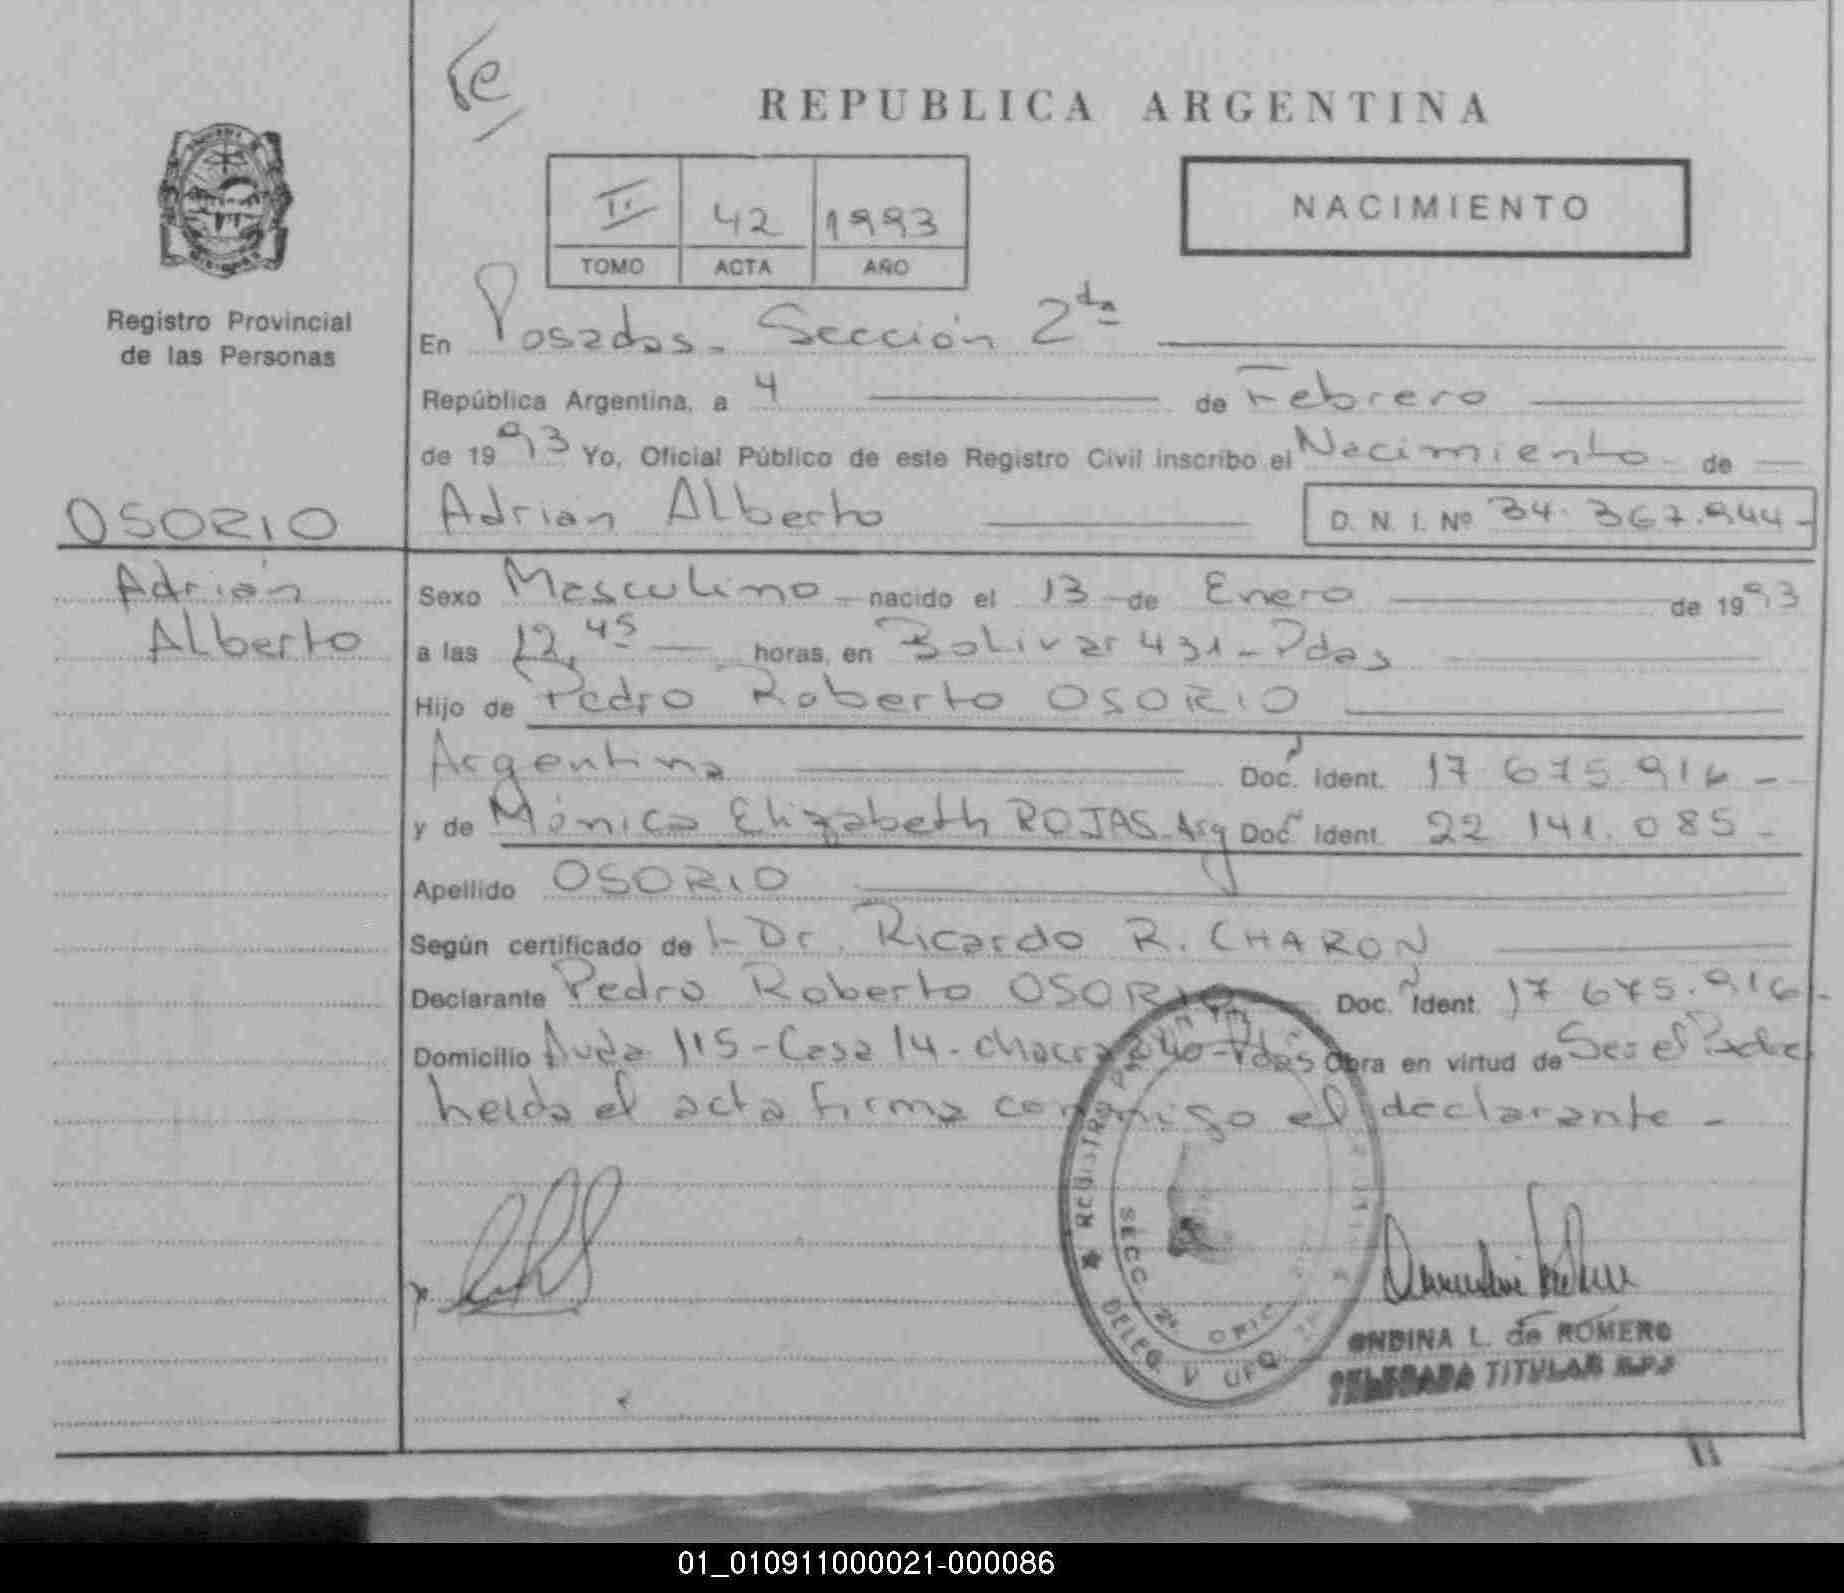 REPUBLICA ARGENTINA
NACIMIENTO
II 42 1993
TOMO ACTA AÑO
Registro Provincial
de las Personas
En Posadas - Sección 2da
República Argentina, a 4 de Febrero
de 1993 Yo, Oficial Público de este Registro Civil inscribo el Nacimiento - de
OSORIO
Adrián Alberto
D. N. I. Nº 34.367.944-
Adrián
Alberto
Sexo Masculino nacido el 13 de Enero de 1993
a las 12,45 horas, en Bolivar 431 - Pdas
Hijo de Pedro Roberto OSORIO
Argentina Doc. Ident. 17 675.916 -
y de Mónica Elizabeth ROJAS - Arg Doc. Ident. 22 141.085 -
Apellido OSORIO
Según certificado de Dr. Ricardo R. CHARON
Declarante Pedro Roberto OSORIO Doc. Ident. 17 675.916 -
Domicilio Avda 115 - Casa 14 - chacra 40 - Pdas Obra en virtud de Ser el Padre
Leida el acta firma conmigo el declarante -
REGISTRO
SECC. 2ª
DELEG
ONDINA L. de ROMERO
DELEGADA TITULAR
01_010911000021-000086